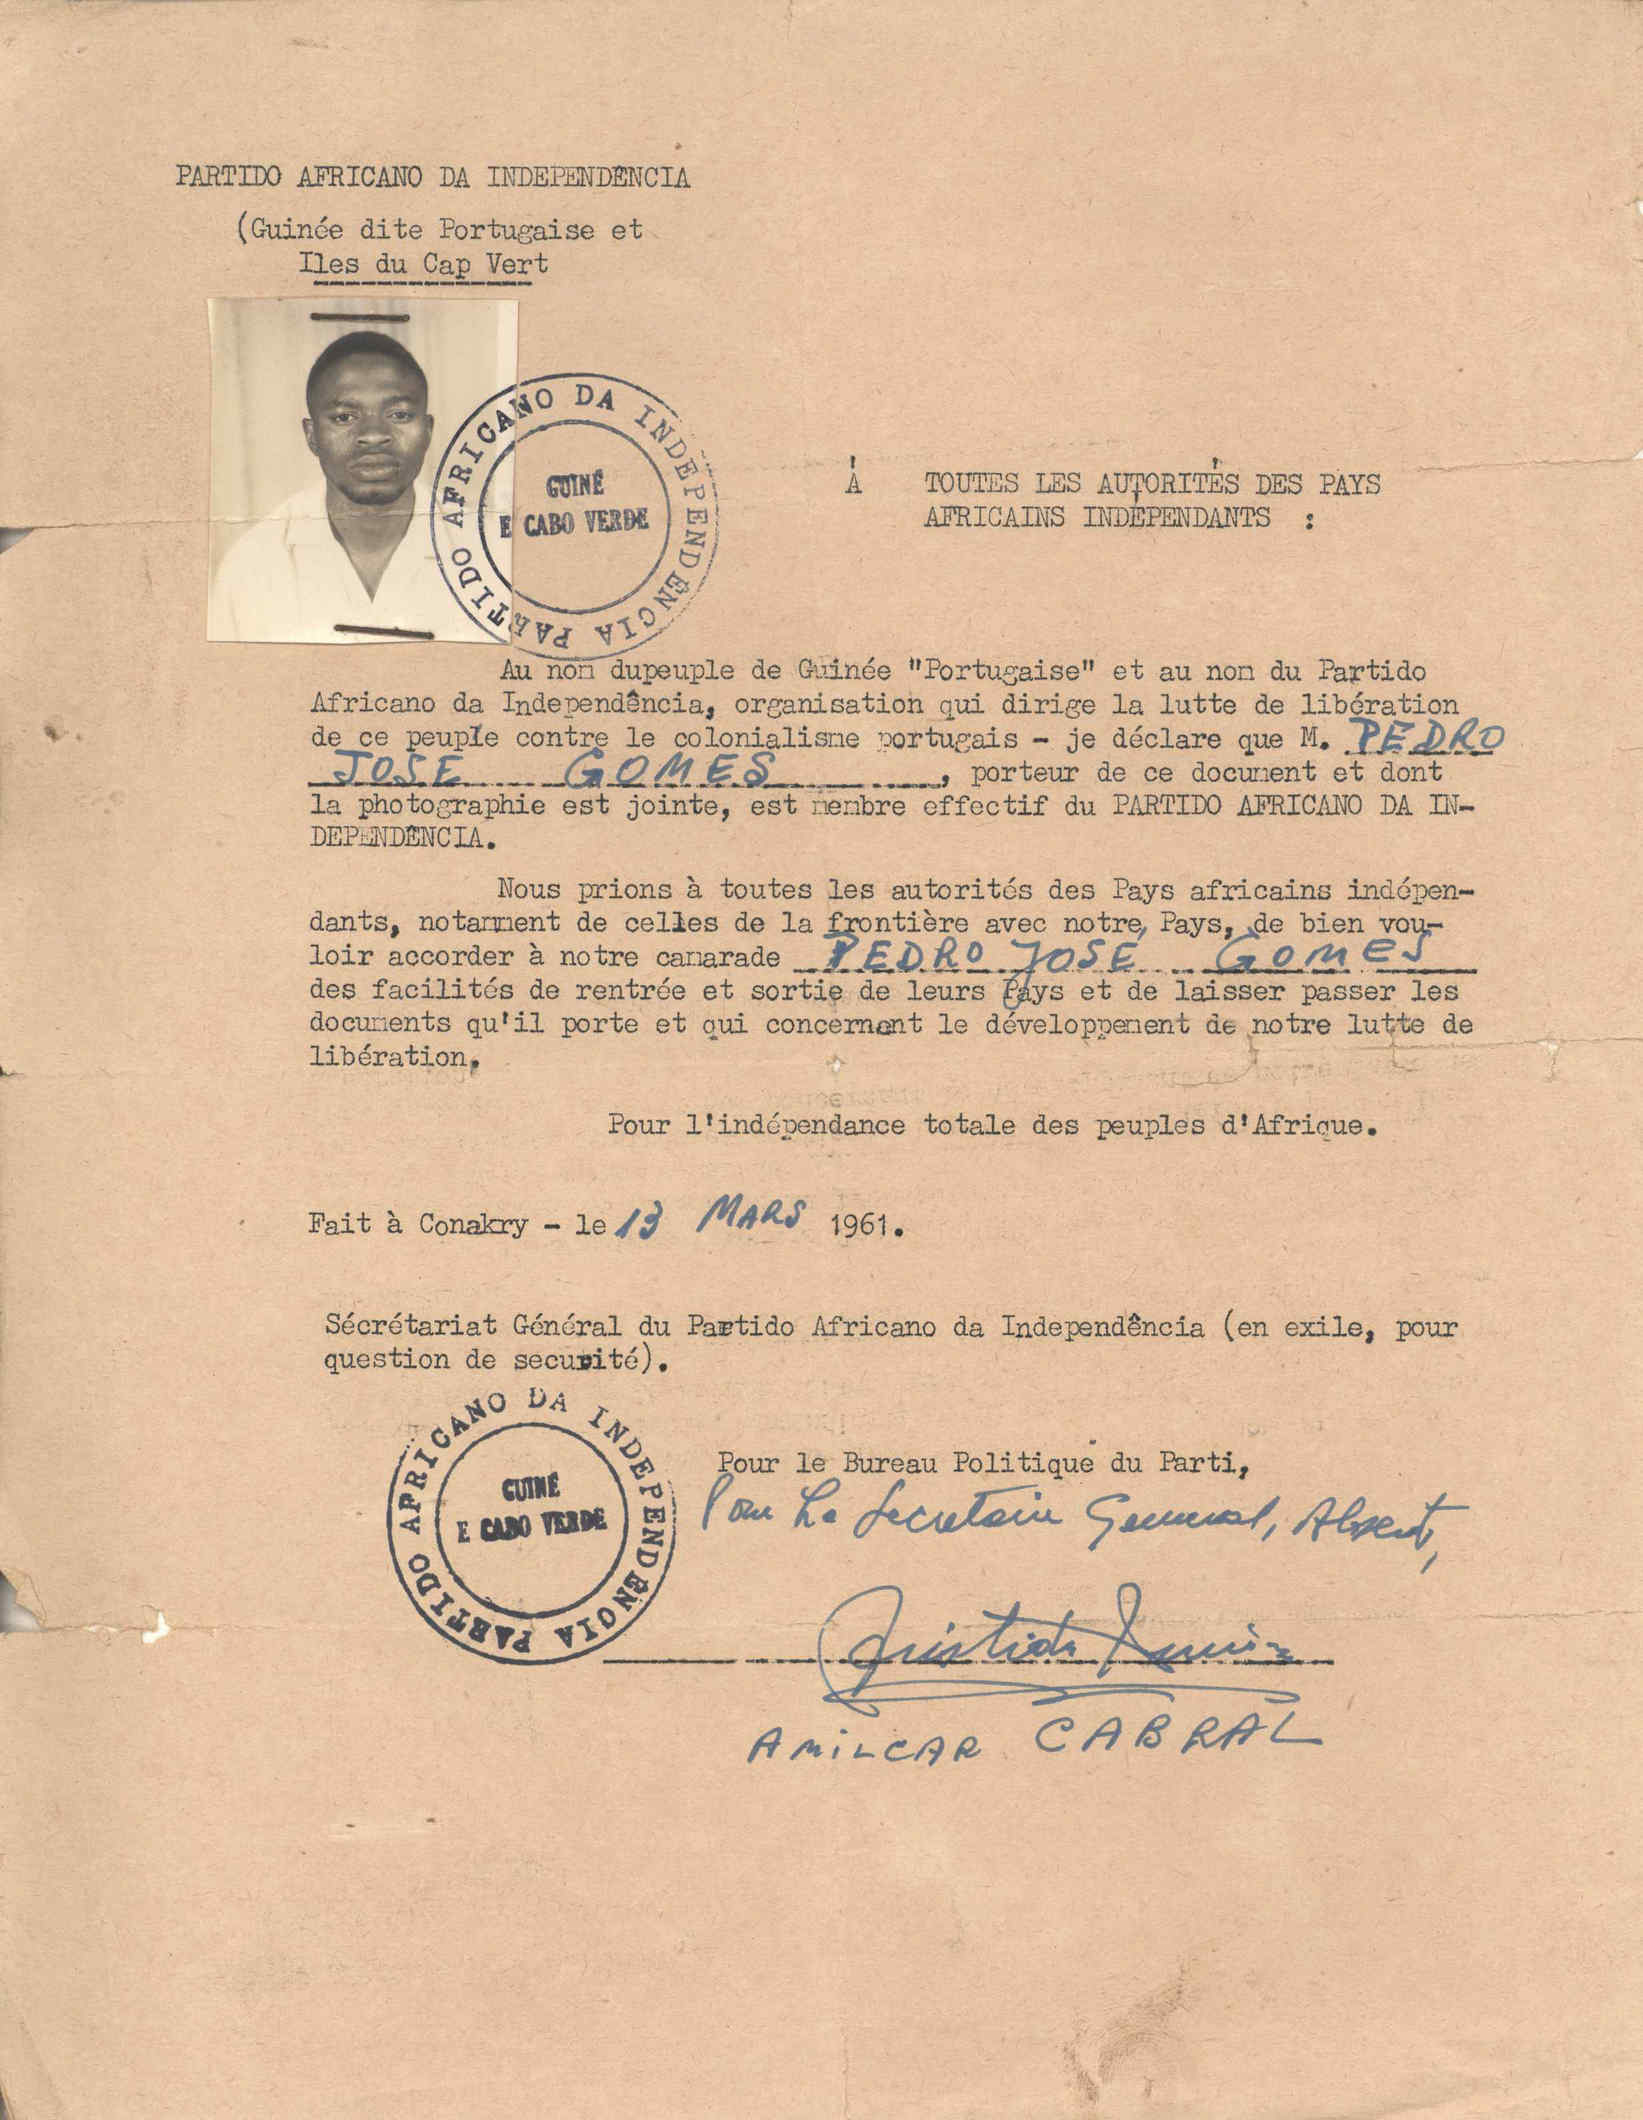 PARTIDO AFRICANO DA INDEPENDÊNCIA
(Guinée dite Portugaise et
Iles du Cap Vert
PARTIDO AFRICANO DA INDEPENDÊNCIA
GUINÉ
E CABO VERDE
À TOUTES LES AUTORITÉS DES PAYS
AFRICAINS INDÉPENDANTS :
Au nom dupeuple de Guinée "Portugaise" et au nom du Partido
Africano da Independência, organisation qui dirige la lutte de libération
de ce peuple contre le colonialisme portugais - je déclare que M. PEDRO
JOSE GOMES, porteur de ce document et dont
la photographie est jointe, est membre effectif du PARTIDO AFRICANO DA IN-
DEPENDÊNCIA.
Nous prions à toutes les autorités des Pays africains indépen-
dants, notamment de celles de la frontière avec notre Pays, de bien vou-
loir accorder à notre camarade PEDRO JOSE GOMES
des facilités de rentrée et sortie de leurs Pays et de laisser passer les
documents qu'il porte et qui concernent le développement de notre lutte de
libération.
Pour l'indépendance totale des peuples d'Afrique.
Fait à Conakry - le 13 MARS 1961.
Sécrétariat Général du Partido Africano da Independência (en exile, pour
question de securité).
PARTIDO AFRICANO DA INDEPENDÊNCIA
GUINÉ
E CABO VERDE
Pour le Bureau Politique du Parti,
Pour Le Secretaire General, Absent,
AMILCAR CABRAL